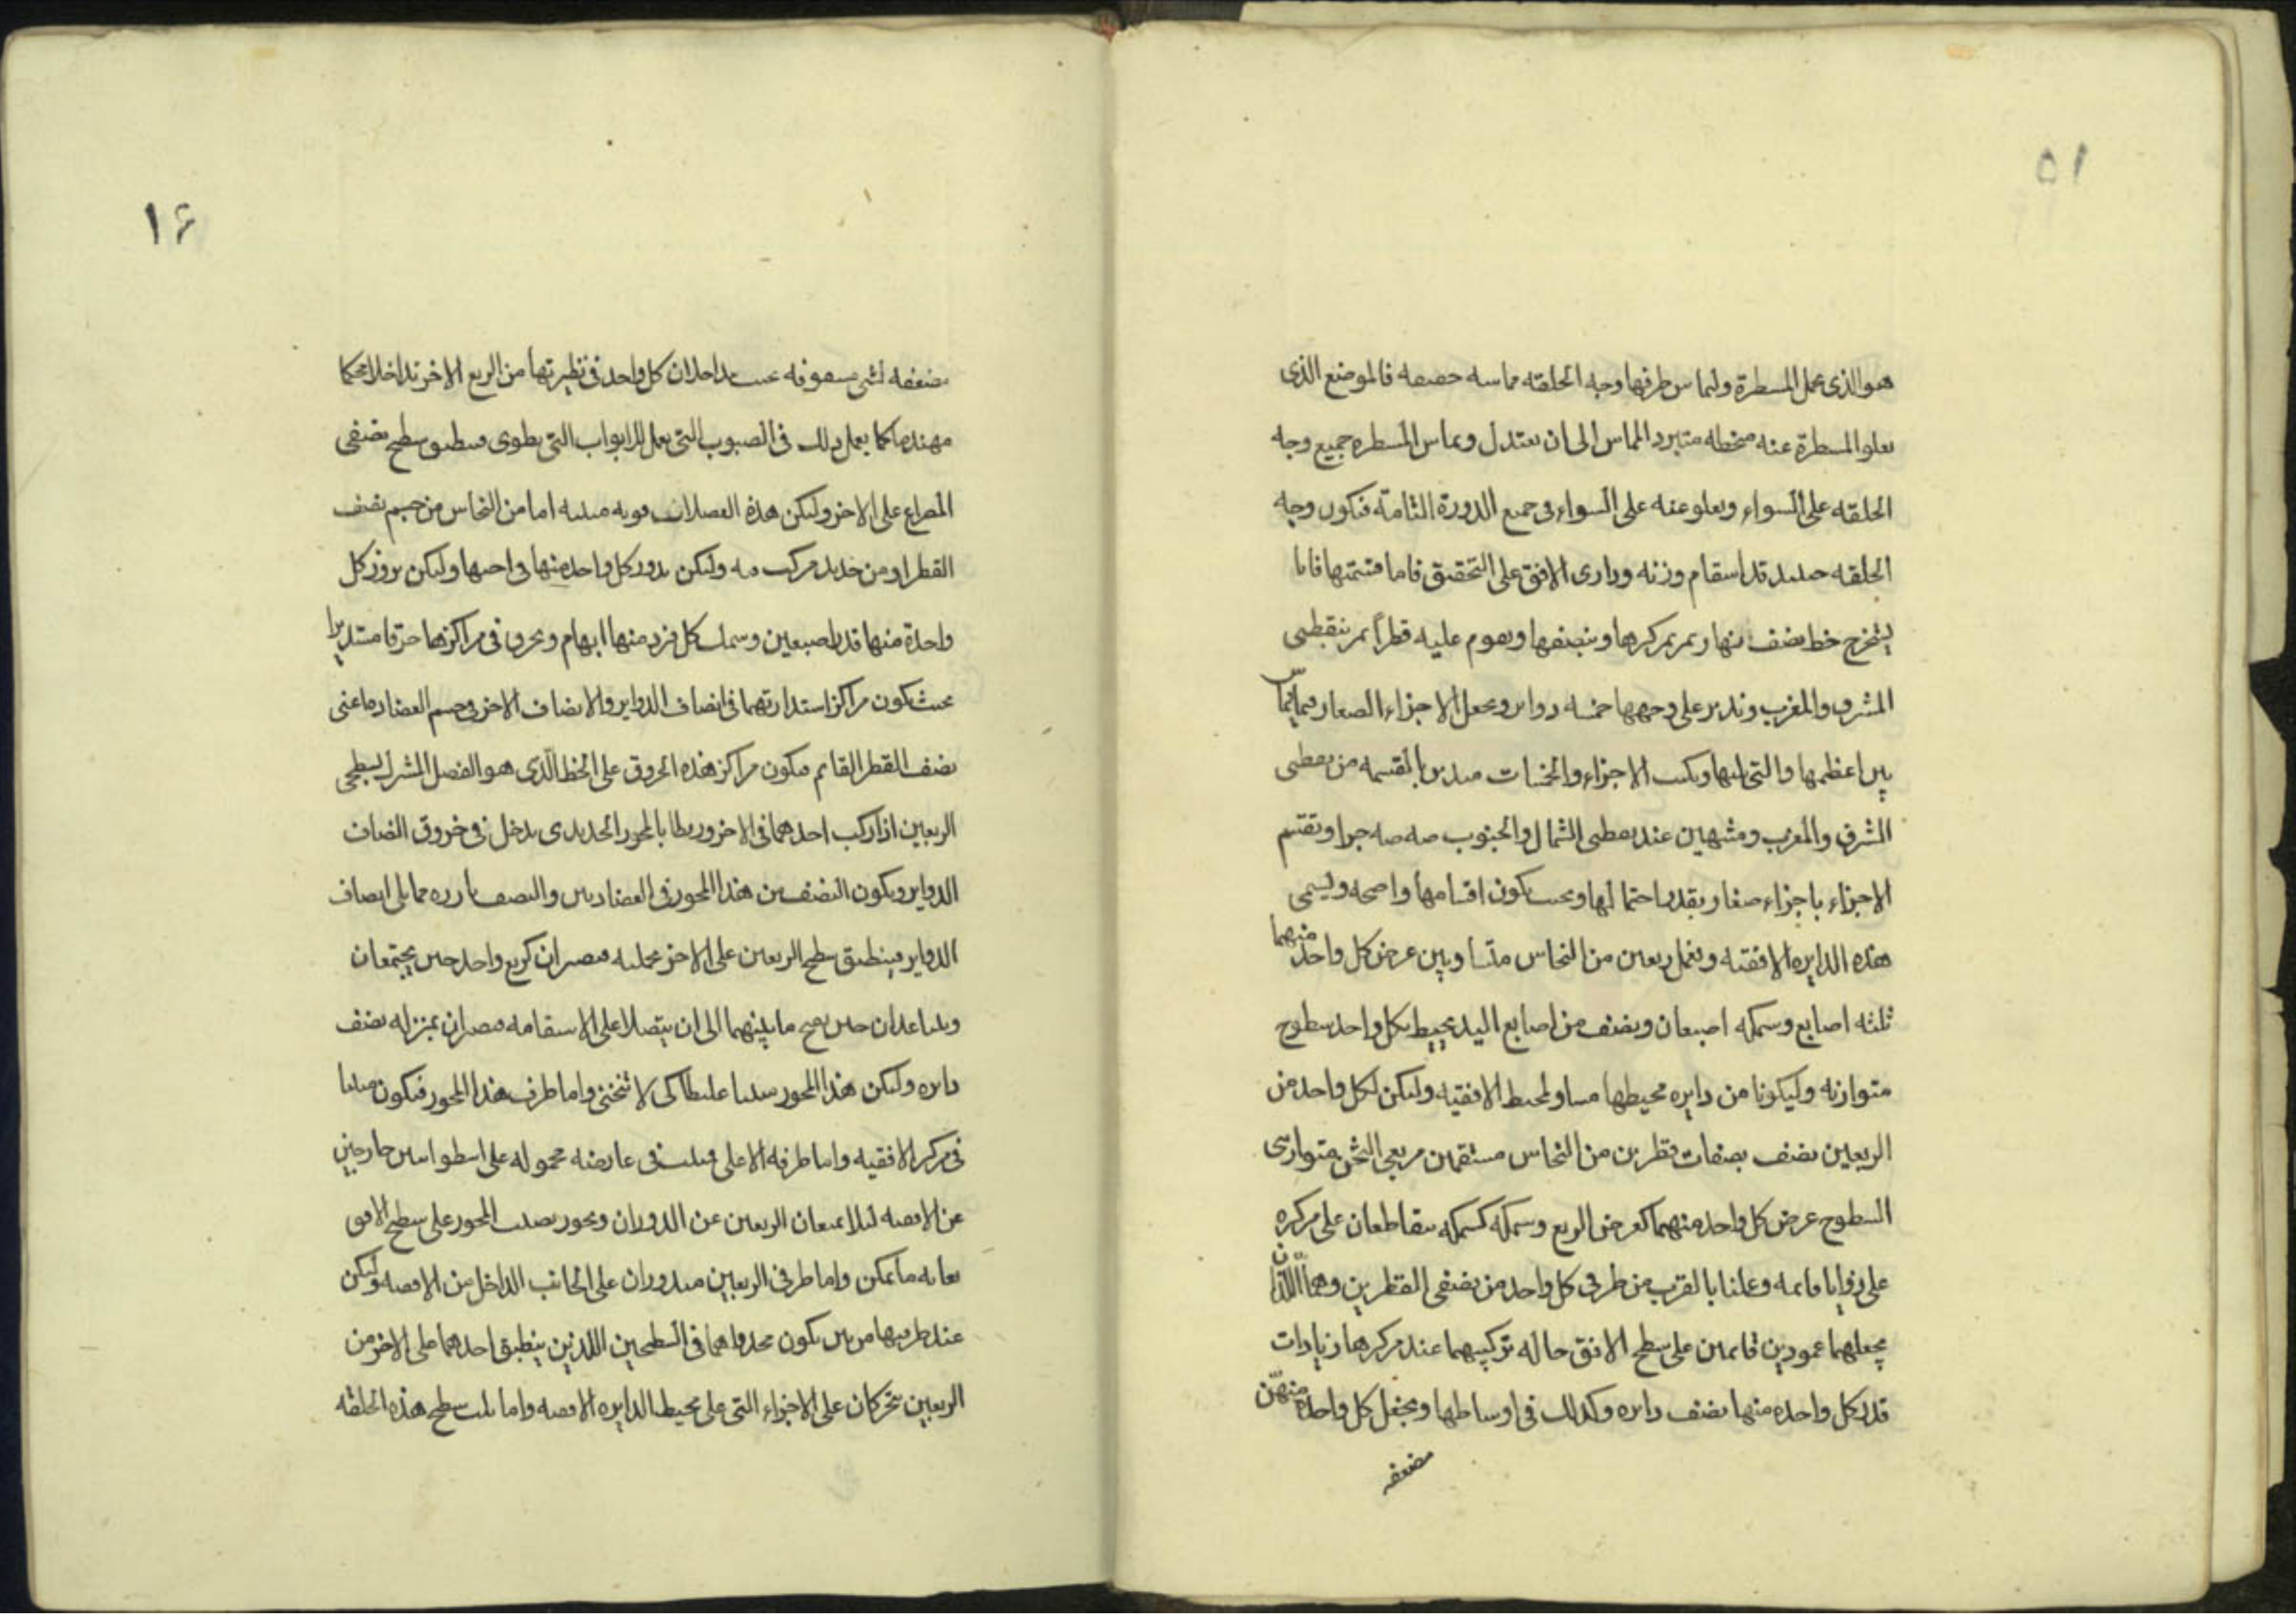 ٥١
هو الذى عمل المسطرة وليماس طرفها وجه الحلقه مماسه حصصه فالموضع الذى
تعلو المسطرة عنه متبرد المماس الى ان يعتدل ويماس المسطره جميع وجه
الحلقه على السواء ويعلو عنه على السواء فى جميع الدورة التامة فتكون وجه
الحلقه حينئذ قد استقام وزنه ووازى الافق على التحقيق فاما قسمتها فانا
يستخرج خط نصف نهار يمر بمركزها وينصفها ويقوم عليه قطراً يمر بنقطتى
المشرق والمغرب وندير على وجهها خمسه دواير ويجعل الاجزاء الصغار فيما
بين اعظمها والتى يليها ويكتب الاجزاء والخمسات مبديين بالقسمه من نقطتى
المشرق والمغرب ومنتهين عند نقطتى الشمال والجنوب صه صه جزا وتقسم
الاجزاء باجزاء صغار بقدر احتمالها وبحيث يكون اقسامها واضحه ويسمى
هذه الدايره الافقيه ونعمل ربعين من النحاس متساويين عرض كل واحد منهما
ثلثه اصابع وسمكه اصبعان ونصف من اصابع اليد يحيط بكل واحد سطوح
متوازيه وليكونا من دايره محيطها مساو لمحيط الافقيه وليكن لكل واحد من
الربعين نصف بصفات قطرين من النحاس مستقيمين مربعى الثخن متوازى
السطوح عرض كل واحد منهما كعرض الربع وسمكه كسمكه يتقاطعان على مركزه
على زوايا قايمه وعملنا بالقرب من طرفى كل واحد من نصفى القطرين وهما اللذان
يجعلهما عمودين قايمين على سطح الافق حاله تركيبهما عند مركزها زيادات
قدر كل واحده منها نصف دايره وكذلك فى اوساطها ويجعل كل واحدة منهن
مضعفه
١٦
مضعفه لشى بحيث يداخلان كل واحد فى نظيرتها من الربع الاخر تداخلا محكما
مهندما كما يعمل ذلك فى الصبوب التى يعمل للابواب التى يطوى فينطبق سطح نصفى
المصراع على الاخر وليكن هذه الفضلات قويه متينه اما من النحاس من جسم نصف
القطر او من حديد مركب فيه وليكن بدور كل واحد منها فى اختها وليكن بروز كل
واحدة منها قدر اصبعين وسمك كل فرد منها ابهام ويخرق فى مراكزها خرقا مستديرا
بحيث تكون مراكز استدارتهما فى انصاف الدواير والانصاف الاخر فى جسم العضاده اعنى
نصف القطر القايم فيكون مراكز هذه الخروق على الخط الذى هو الفصل المشترك لسطحى
الربعين اذا ركب احدهما فى الاخر وربطا بالمحور الحديدى يدخل فى خروق انصاف
الدواير ويكون النصف من هذا المحور فى العضادتين والنصف بارزه مما يلى انصاف
الدواير فينطبق سطح الربعين على الاخر بجملته فيصيران كربع واحد حين يجتمعان
ويتباعدان حين يفتح ما بينهما الى ان يتصلا على الاستقامه فيصيران بمنزله نصف
دايره وليكن هذا المحور متينا غليظا كى لا ينحنى واما طرف هذا المحور فيكون مثبتا
فى مركز الافقيه واما طرفه الاعلى فيثبت فى عارضه محموله على اسطوانتين خارجتين
عن الافقيه ليلا يمنعان الربعين عن الدوران ويحور نصب المحور على سطح الافق
بغايه ما يمكن واما طرفى الربعين فيدوران على الجانب الداخل من الافقيه وليكن
عند طرفيها مريين يكون محدداهما فى السطحين اللذين ينطبق احدهما على الاخر من
الربعين يتحركان على الاجزاء التى على محيط الدايره الافقيه واما يثبت سطح هذه الحلقه